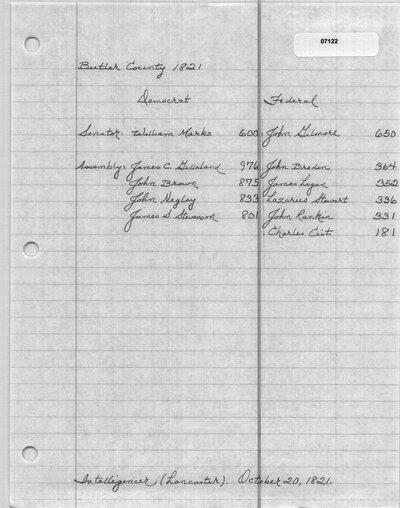 07122
Butler County 1821
Democrat Federal
Senator: William Marks 600 John Gilmore 650
Assembly: James C. Gilleland 976 John Bredin 364
John Brown 875 James Logan 352
John Negley 833 Lazarus Stewart 336
James S. Stevenson 801 John Rankin 331
Charles Cist 181
Intelligencer (Lancaster). October 20, 1821.